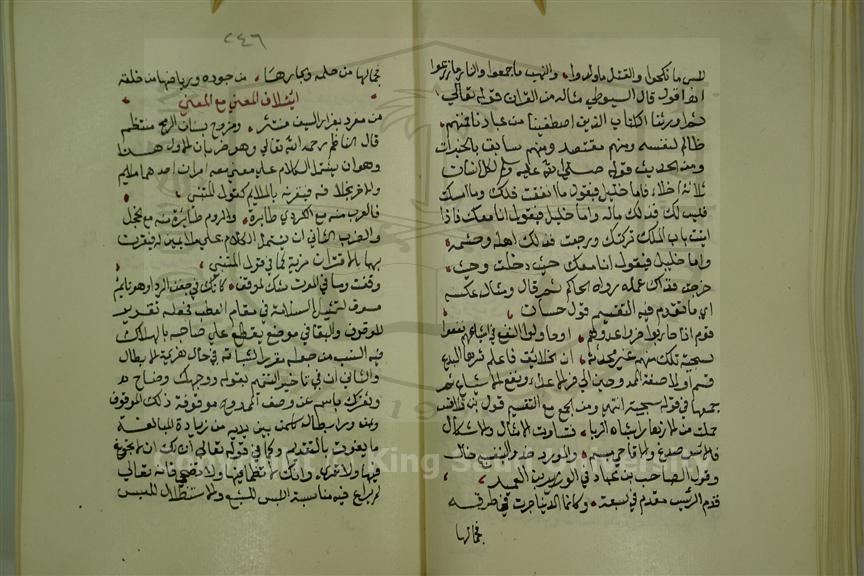 للسبي ما نكحوا والقتل ما ولدوا والنهب ما جمعوا والنار ما زرعوا
انها اقول قال السيوطي مثاله من القران قوله تعالى
ثم اورثنا الكتاب الذين اصطفينا من عبادنا فمنهم
ظالم لنفسه ومنهم مقتصد ومنهم سابق بالخيرات
ومن الحديث قوله صلى الله عليه وسلم لكل انسان
ثلاثة اخلاء فاما خليل فيقول ما انفقت فلك وما امسكت
فليس لك فذلك ماله واما خليل فيقول انا معك فاذا
اتيت باب الملك تركتك ورجعت فذلك اهله وحشمه
واما خليل فيقول انا معك حيث دخلت وحيث
خرجت فذاك عمله رواه الحاكم ثم قال ومثال عكسه
اي ما تقدم فيه التقسيم قول حسان
قوم اذا حاربوا ضروا عدوهم او حاولوا النفع في اشياعهم نفعوا
سجية تلك منهم غير محدثة ان الخلائق فاعلم شرها البدع
قسم اولا صفة الممدوحين الى ضر الاعداء ونفع الاشياع ثم
جمعها في قوله سجية انتهى ومن الجمع مع التقسيم قول
فالانس صدع والاقاحي مبسم والورد خد والبنفسج خال
وقول الصاحب بن عباد في الوزير بن العميد
قدم الرئيس مقدم في سبقه وكانما الدنيا جرت في طرقه
فجبالها
٢٤٦
فجبالها من حلمه وبحارها من جوده ورياضها من خلقه
ائتلاف المعنى مع المعنى
من مفرد بغرار السيف منتثر ومزوج بسنان الرمح منتظم
قال الناظم رحمه الله تعالى وهو ضربان الاول هذا
وهو ان يشتمل الكلام على معنى معه امران احدهما ملايم
والاخر بخلافه فيقرنه بالملايم كقول المتنبي
فالعرب منه مع الكدري طايرة والروم طائرة منه مع الحجل
والضرب الثاني ان يشتمل الكلام على معنى وملايمين له فيقرن
بها بالاقتران مزية كما في قول المتنبي
وقفت وما في الموت شك لواقف كانك في جفن الردى وهو نائم
مسوق لتمثيل السلامة في مقام العطب فجعله تقرير
للوقوف والبقا في موضع يقطع على صاحبه بالهلاك
فيه انسب من جعله مقررا لثباته في حال هزيمة الابطال
والثاني ان في تاخير التتميم بقوله ووجهك وضاح
وثغرك باسم عن وصف الممدوح بوقوفه ذلك الموقف
وبمرور ابطال كلمى بين يديه من زيادة المبالغة
ما يفوت بالتقديم وكما في قوله تعالى ان لك ان لا تجوع
فيها ولا تعرى وانك لا تظما فيها ولا تضحى فانه تعالى
لم يراع فيه مناسبة اللبس للشبع والاستظلال للبس